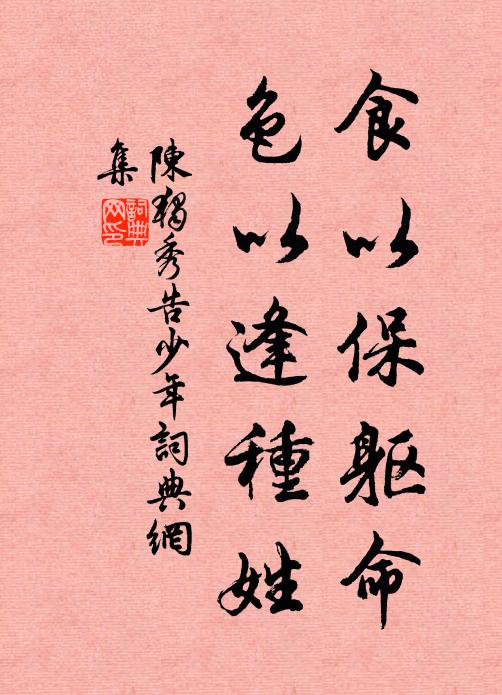 食以保躯命
色以逢種姓
陳獨秀告少年詞典網
集
詞典
网印